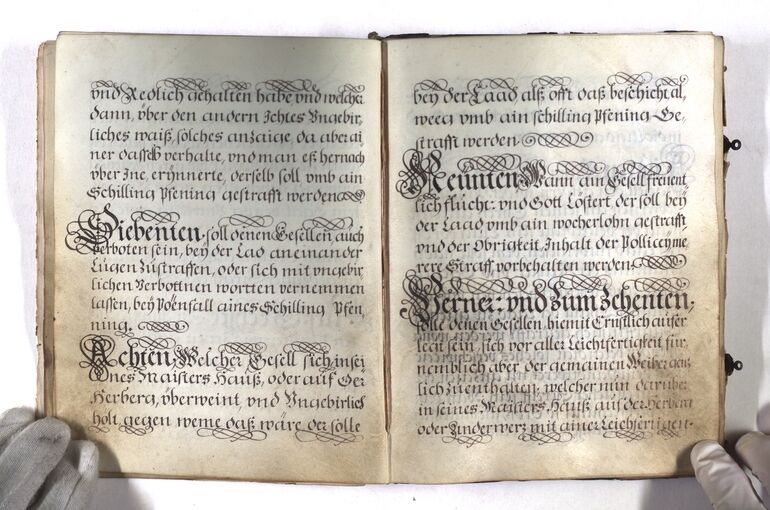 vnd Redlich gehalten habe vnd welcher
dann, über den andern Ichtes Vngebir,
liches waiß, solches anzaige, da aber ai,
ner dasselb verhalte, vnd man eß hernach
über Ine erÿnnerte, derselb soll vmb ain
Schilling Pfening gestrafft werden
Siebenten, soll denen Gesellen auch
verboten sein, beÿ der Lad aneinander
Lügen Zustraffen, oder sich mit vngebir,
lichen Verbottnen wortten vernemmen
lassen, beÿ Poenfall aines Schilling Pfen,
ning.
Achten, Welcher Gesell sich in sei
nes Maisters Hauß, oder auf der
Herberg, überweint, vnd Vngebirlich
holt gegen weme daß wäre, der solle
beÿ der Laad alß offt daß beschicht al,
weeg vmb ain schilling Pfening Ge,
strafft werden
Neunten, Wann ain Gesell freuent,
lich flucht: vnd Gott Löstert der soll beÿ
der Laad vmb ain wocherlohn gestrafft
vnd der Obrigkeit, Inhalt der Polliceÿ me,
rere Straff, vorbehalten werden.
Ferner: vnd Zum Zehenten,
solle denen Gesellen hiemit Ernstlich aufer,
legt sein, sich vor aller Leichtfertigkeit für,
nemblich aber der gemainen Weiber genz,
lich Zuenthalten, welcher nun darüber
in seines Maisters Hauß, auf der Herberg
oder Anderwerz mit ainer Leichfertigen